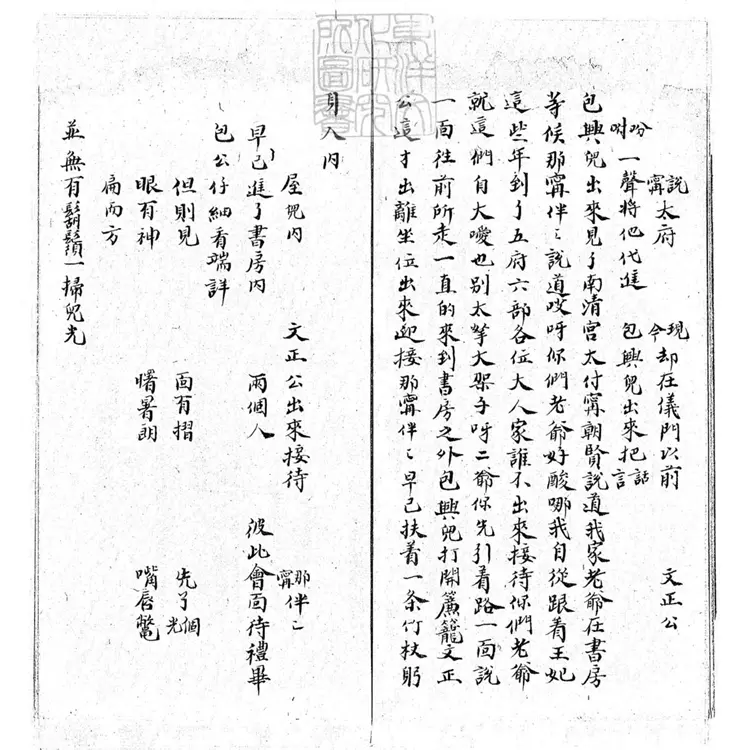 東洋文化研究所圖書
說寗太府　現今却在儀門以前　文正公
吩咐一聲將他代進　包興兒出來把話言
包興兒出來見了南清宮太付寗朝賢說道我家老爺在書房
等候那寗伴〻說道哎呀你們老爺好酸哪我自從跟着王妃
這些年到了五府六部各位大人家誰不出來接待你們老爺
就這們自大嗳也别太拏大架子呀二爺你先引着路一面說
一面往前所走一直的來到書房之外包興兒打開簾籠文正
公這才出離坐位出來迎接那寗伴〻早已扶着一条竹杖躬
身入内
屋兒内　文正公出來接待　那寗伴〻
早已進了書房内　兩個人　彼此會面待禮畢
包公仔細看端詳
但則見　面有摺　先了個光
眼有神　曙暑朗　嘴唇鱉
扁而方
並無有鬍鬚一掃兒光